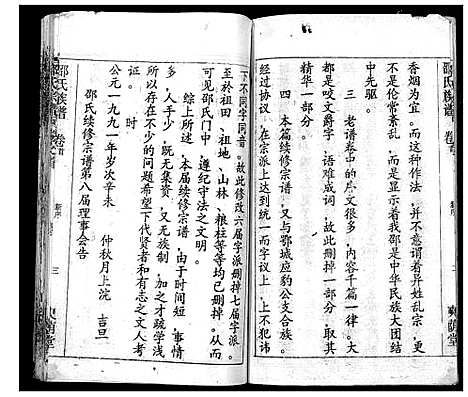 邵氏族谱 卷首 新序
香烟为宜。而这种作法，并不意谓着异姓乱宗，更
不是伦常紊乱，而是显示着我邵是中华民族大团结
中先驱。
三 老谱卷中的序文很多，内容千篇一律。大
都是咬文爵字，语难成词，故此删掉一部分。
精华一部分。
四 本篇续修宗谱，又与鄂城应豹公支合族。
经过协议，在宗派上达到统一而字议上，上不犯讳
下不同字同音。故此修改六届字派删掉七届字派。
至於祖田、祖地、山林、粮柱等等均已删掉。从而
可见邵氏门中，遵纪守法之文明。
综上所述，本届续修宗谱，由于时间短，事情
多，人手少，既无集资，又无族制，加之才疏学浅
所以存在不少的问题希望下代贤者和有志之文人考
证！ 时
公元一九九一年岁次辛未 仲秋月上浣 吉旦
邵氏续修宗谱第八届理事会告
邵氏族谱 卷首 新序 三